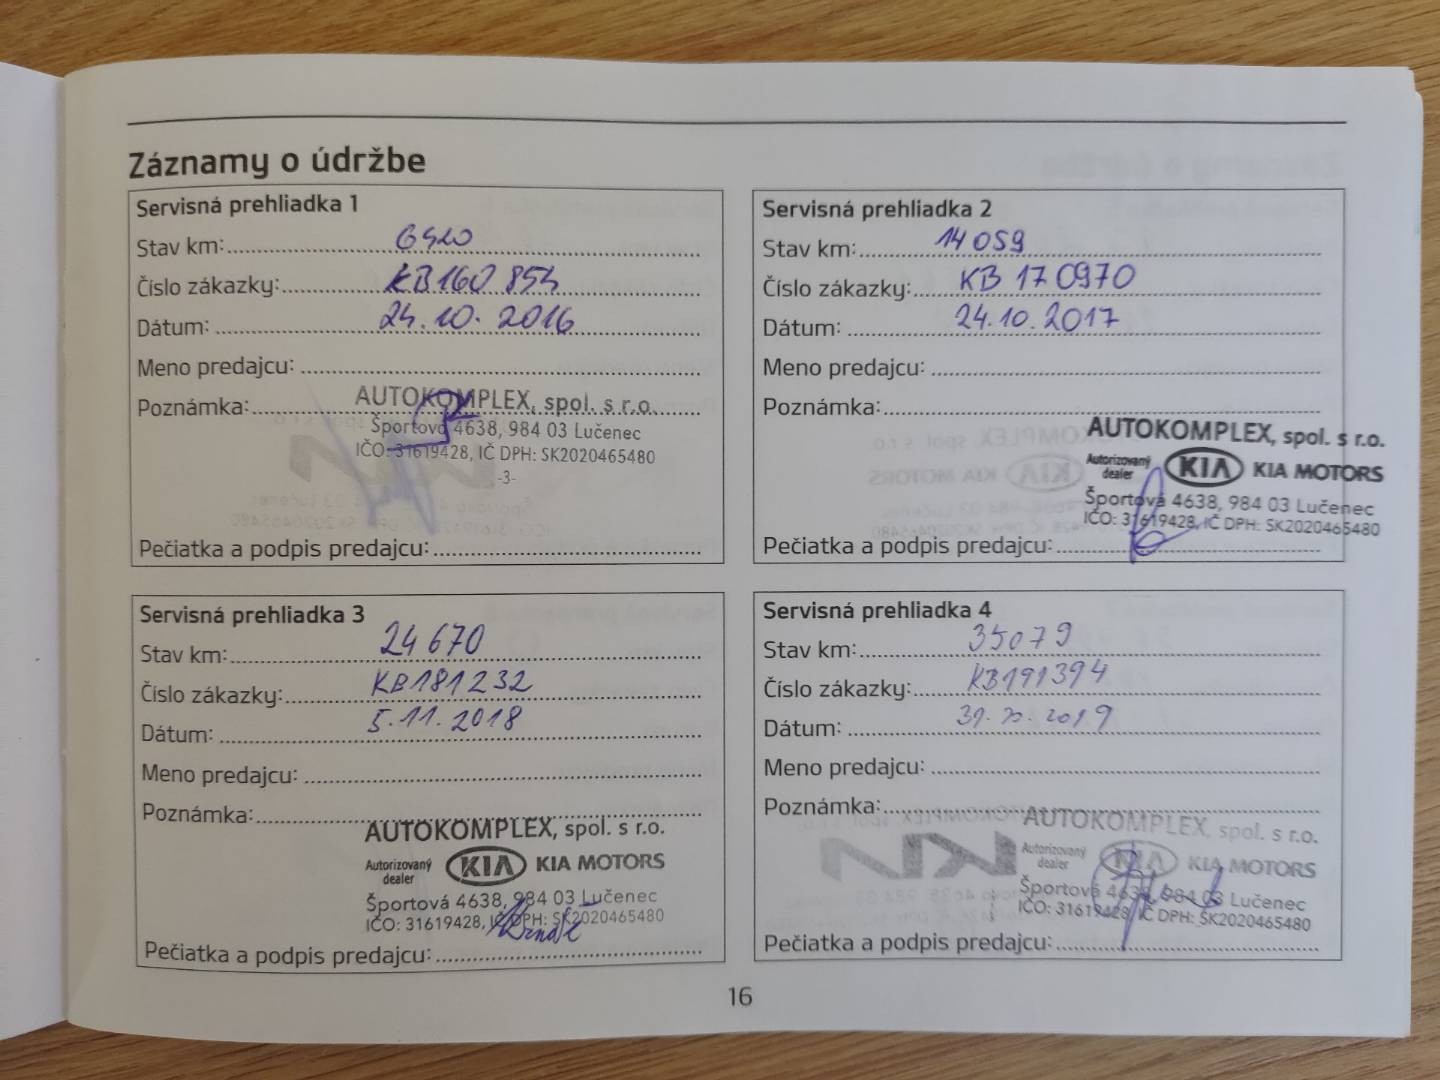 Záznamy o údržbe
Servisná prehliadka 1
Stav km: 6420
Číslo zákazky: KB160854
Dátum: 24.10.2016
Meno predajcu:
Poznámka:
AUTOKOMPLEX, spol. s r.o.
Športová 4638, 984 03 Lučenec
IČO: 31619428, IČ DPH: SK2020465480
-3-
Pečiatka a podpis predajcu:
Servisná prehliadka 2
Stav km: 14059
Číslo zákazky: KB 170970
Dátum: 24.10.2017
Meno predajcu:
Poznámka:
AUTOKOMPLEX, spol. s r.o.
Autorizovaný dealer KIA KIA MOTORS
Športová 4638, 984 03 Lučenec
IČO: 31619428, IČ DPH: SK2020465480
Pečiatka a podpis predajcu:
Servisná prehliadka 3
Stav km: 24670
Číslo zákazky: KB181232
Dátum: 5.11.2018
Meno predajcu:
Poznámka:
AUTOKOMPLEX, spol. s r.o.
Autorizovaný dealer KIA KIA MOTORS
Športová 4638, 984 03 Lučenec
IČO: 31619428, IČ DPH: SK2020465480
Pečiatka a podpis predajcu:
Servisná prehliadka 4
Stav km: 35079
Číslo zákazky: KB191394
Dátum:
Meno predajcu:
Poznámka:
AUTOKOMPLEX, spol. s r.o.
Autorizovaný dealer KIA KIA MOTORS
Športová 4638, 984 03 Lučenec
IČO: 31619428, IČ DPH: SK2020465480
Pečiatka a podpis predajcu:
16